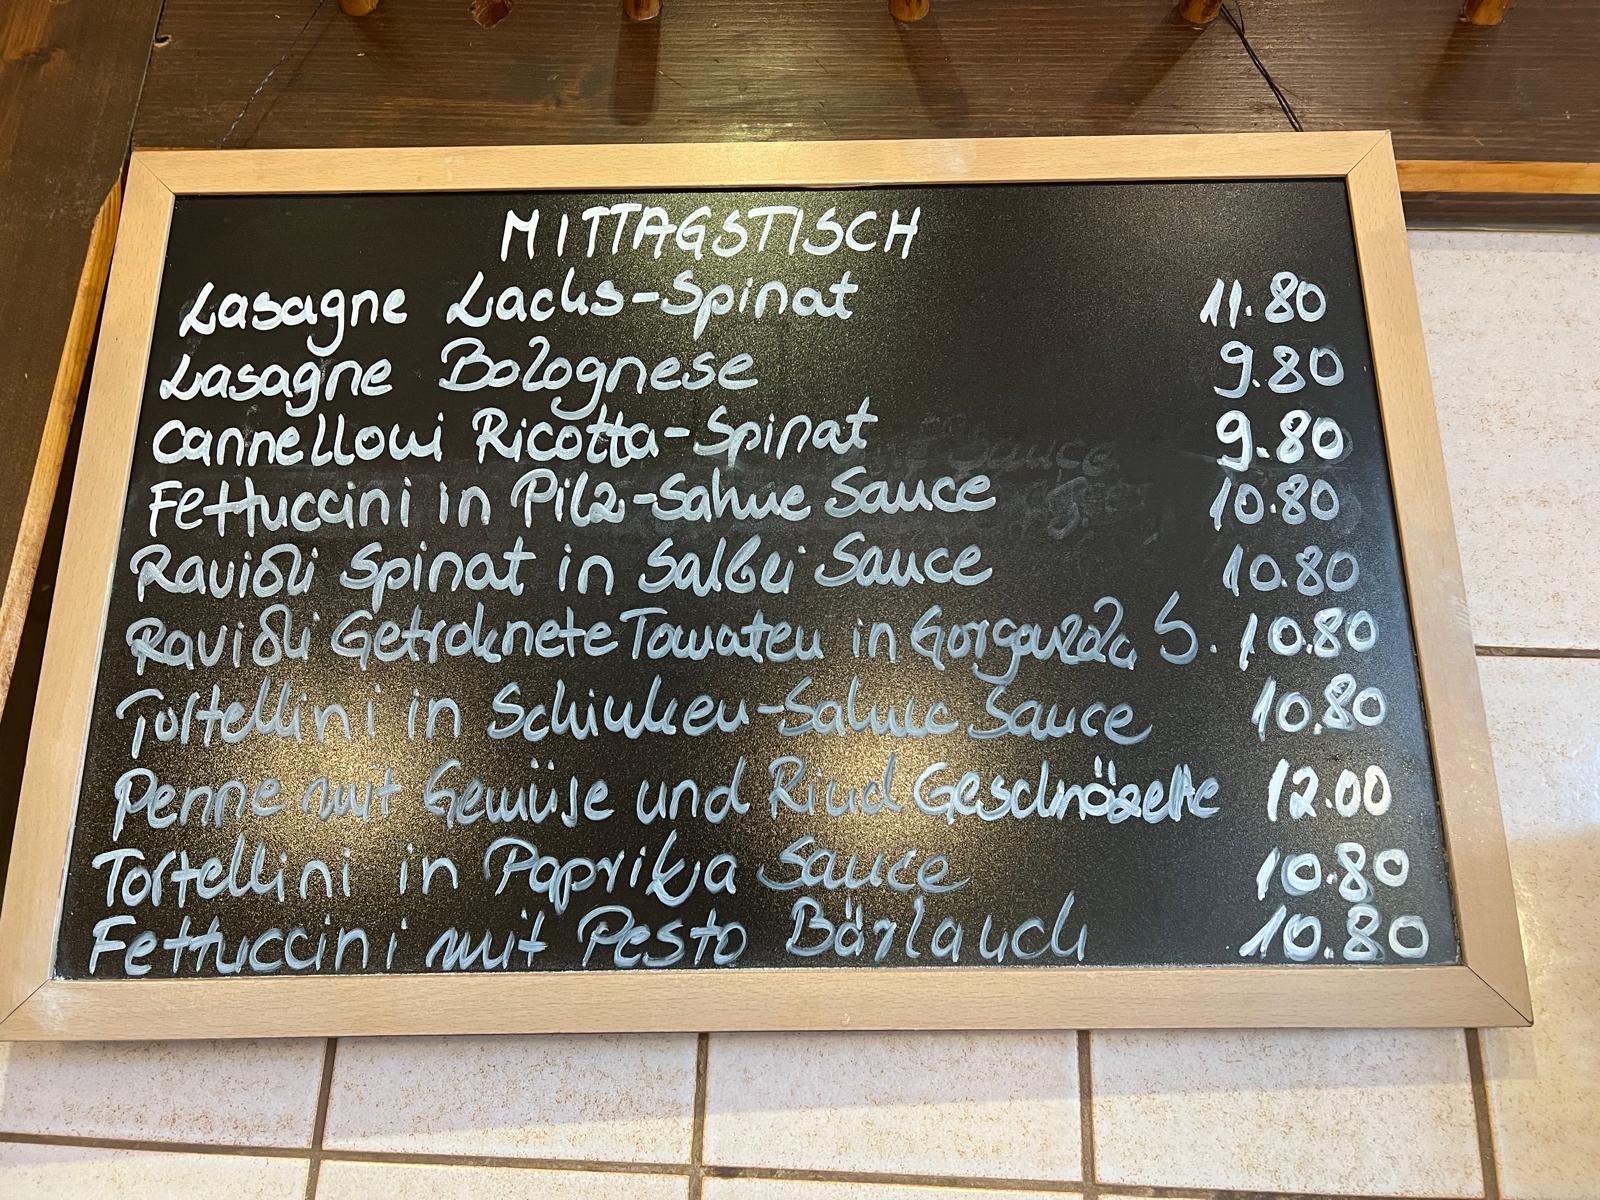 MITTAGSTISCH
Lasagne Lachs-Spinat 11.80
Lasagne Bolognese 9.80
Cannelloni Ricotta-Spinat 9.80
Fettuccini in Pilz-Sahne Sauce 10.80
Ravioli Spinat in Salbei Sauce 10.80
Ravioli Getroknete Tomaten in Gorgonzola S. 10.80
Tortellini in Schinken-Sahne Sauce 10.80
Penne mit Gemüse und Rind Geschnözelte 12.00
Tortellini in Paprika Sauce 10.80
Fettuccini mit Pesto Bärlauch 10.80